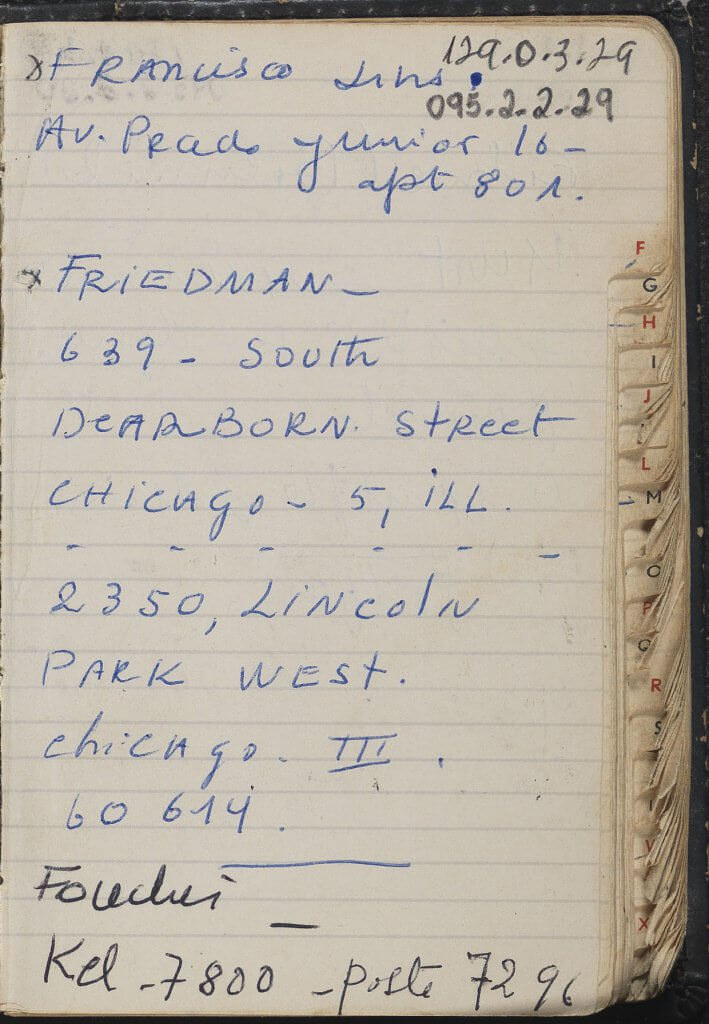 x FRANCISCO Lins. 129.0.3.29
095.2.2.29
Av. Prado junior 16 -
apt 801.
x FRIEDMAN -
639 - South
DEARBORN. Street
CHICAGO - 5, ILL.
- - - - - -
2350, LINCOLN
PARK WEST.
chicago. III.
60 614.
Kel - 7800 - poste 7296
F
G
H
I
J
L
M
O
P
Q
R
S
V
X